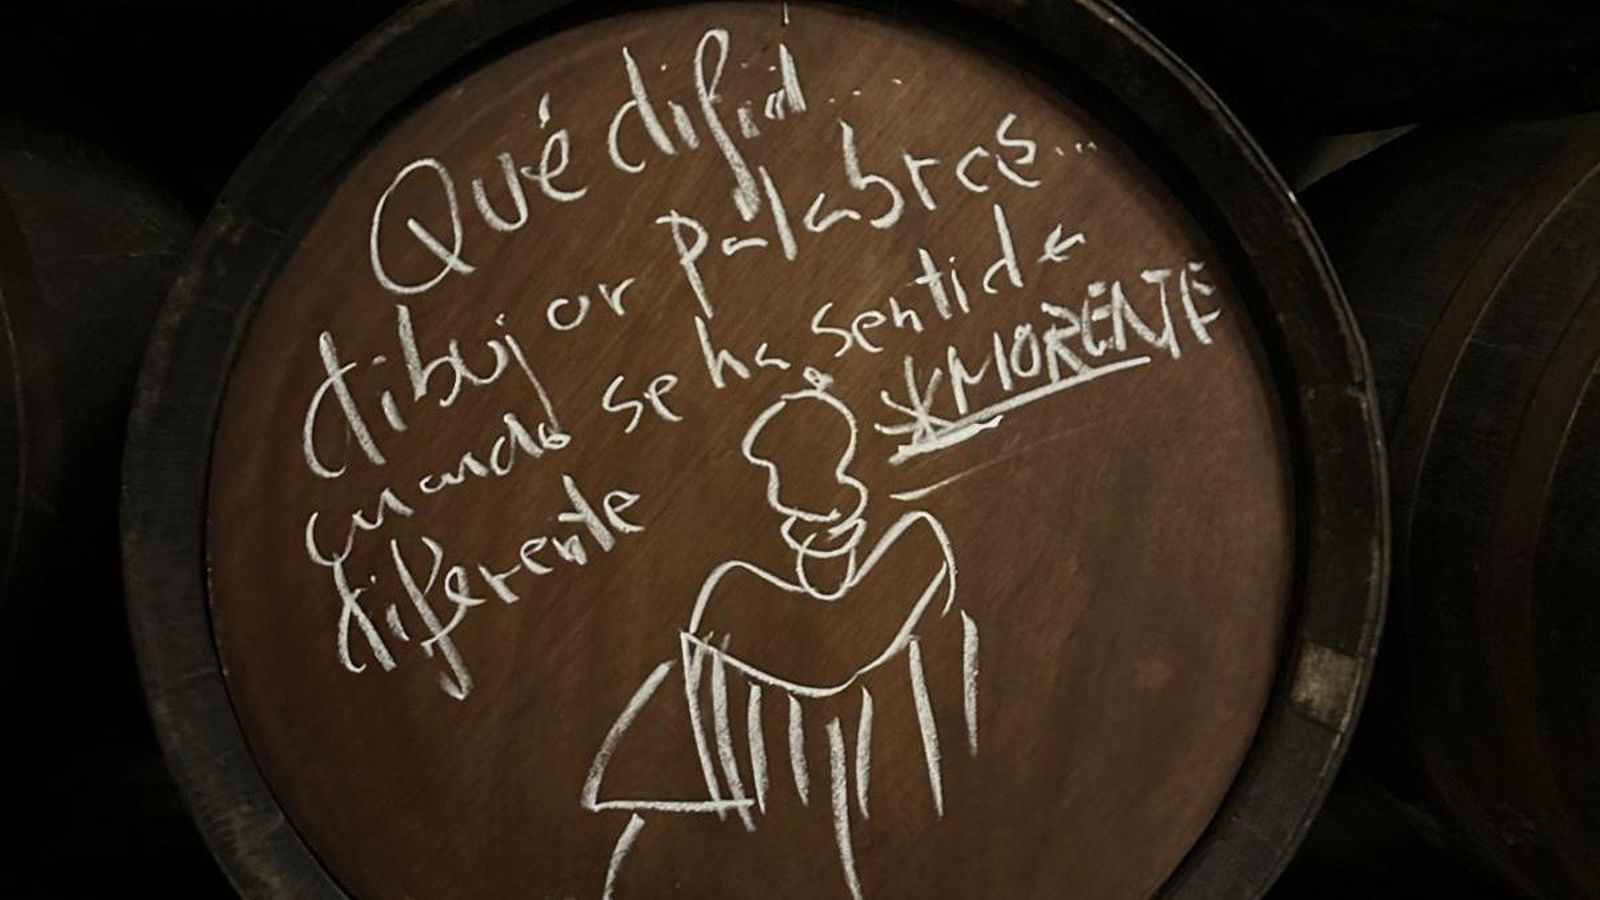 Qué difícil....
dibujar palabras...
cuando se ha sentido
diferente
*MORENTE